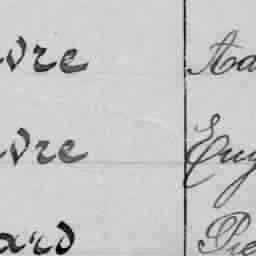 vre Aa
vre Eug
ard Pie